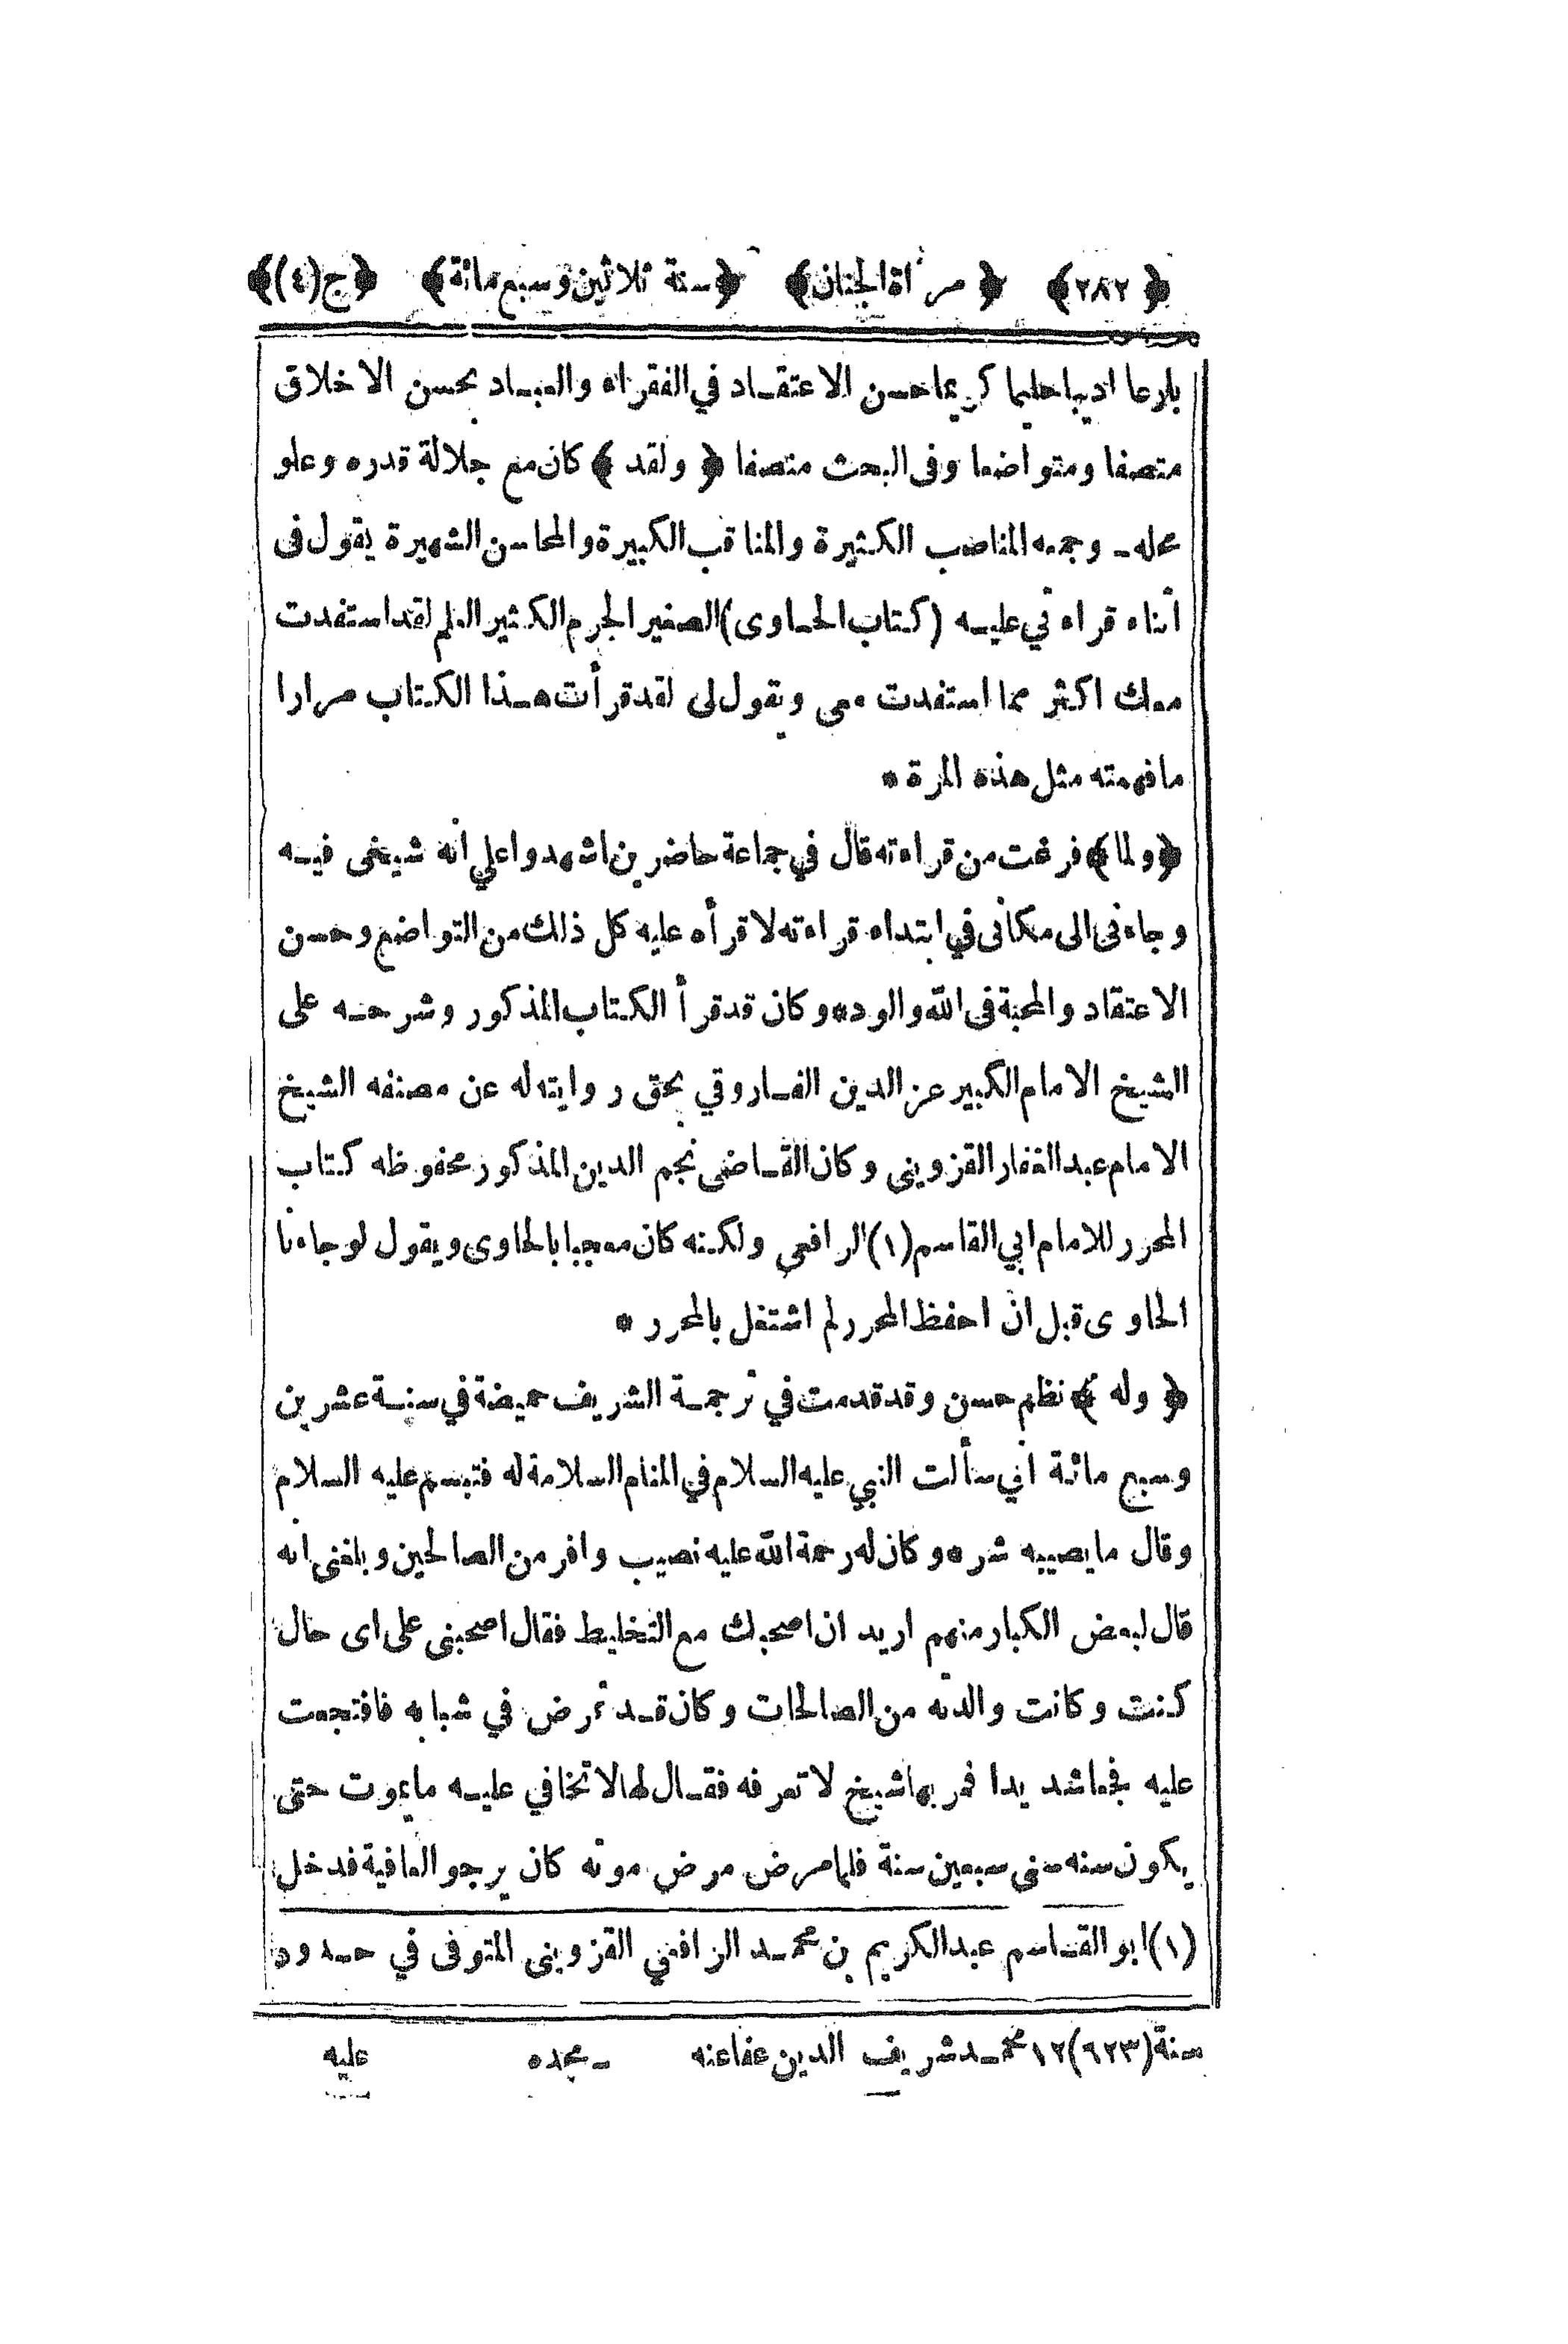 ﴿ ٢٨٢ ﴾ ﴿ مرآة الجنان ﴾ ﴿ سنة ثلاثين وسبع مائة ﴾ ﴿ ج (٤) ﴾
بارعا اديبا حليما كريما حسن الاعتقاد في الفقراء والعباد بحسن الاخلاق
متصفا ومتواضعا وفى البحث منصفا ﴿ ولقد ﴾ كان مع جلالة قدره وعلو
محله وجمعه المناصب الكثيرة والمناقب الكبيرة والمحاسن الشهيرة يقول فى
أثناء قراء تي عليه (كتاب الحاوى) الصغير الجرم الكثير العلم لقد استفدت
معك اكثر مما استفدت معى ويقول لى لقد قرأت هذا الكتاب مرارا
ما فهمته مثل هذه المرة *
﴿ ولما ﴾ فرغت من قراءته قال في جماعة حاضرين اشهدوا علي انه شيخى فيه
وجاءنى الى مكانى في ابتداء قراءته لا قرأه عليه كل ذلك من التواضع وحسن
الاعتقاد والمحبة فى الله والود * وكان قد قرأ الكتاب المذكور وشرحه على
الشيخ الامام الكبير عز الدين الفاروقي بحق روايته له عن مصنفه الشيخ
الامام عبد الغفار القزوينى وكان القاضى نجم الدين المذكور محفوظه كتاب
المحرر للامام ابي القاسم (١) الرافعى ولكنه كان معجبا بالحاوى ويقول لو جاءنا
الحاوى قبل ان احفظ المحرر لم اشتغل بالمحرر *
﴿ وله ﴾ نظم حسن وقد قدمت في ترجمة الشريف حميضة في سنة عشرين
وسبع مائة اني سألت النبي عليه السلام في المنام السلامة له فتبسم عليه السلام
وقال ما يصيبه شر * وكان له رحمة الله عليه نصيب وافر من الصالحين وبلغنى انه
قال لبعض الكبار منهم اريد ان اصحبك مع التخليط فقال اصحبنى على اى حال
كنت وكانت والدته من الصالحات وكان قد تمرض في شبابه فافتجعت
عليه فجعا شديدا فمر بها شيخ لا تعرفه فقال لها لا تخافي عليه ما يموت حتى
يكون سنه سنى سبعين سنة فلما مرض مرض موته كان يرجو العافية فدخل
(١) ابو القاسم عبد الكريم بن محمد الرافعي القزوينى المتوفى في حدود
سنة (٦٢٣) ١٢ محمد شريف الدين عفا عنه
عليه